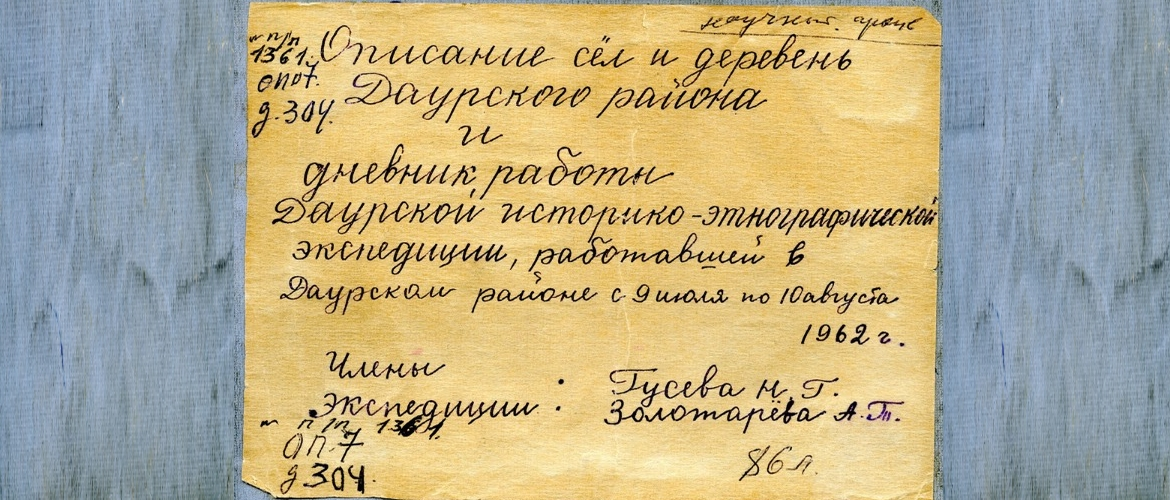 научный архив
п/п
1361.
оп07.
д.304.
Описание сёл и деревень
Даурского района
и
дневник работы
Даурской историко-этнографической
экспедиции, работавшей в
Даурском районе с 9 июля по 10 августа
1962 г.
Члены
экспедиции :
Гусева Н. Г.
Золотарёва А.Т.
п/п 1361.
ОП.7
д304.
86л.